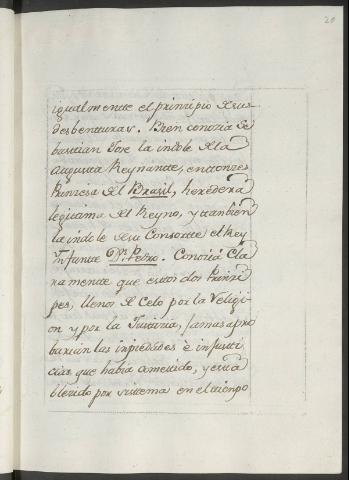 20
igualmentte el prinzipio de sus
desbentturas. Bien conozia Se
bastian Jose la indole de la
Augusta Reynantte, enttonzes
Prinzesa del Brasil, heredera
legitima del Reyno, y tambien
la indole de su Consortte el Rey
Ynfantte Dn. Pedro. Conozia Cla
ramentte que esttos dos Prinzi
pes, llenos de Celo por la Religi-
on y por la Justizia, jamas apro
barian las inpiedades è injusti
cias que habia comettido, y estta
blezido por sisttema en el ttiempo